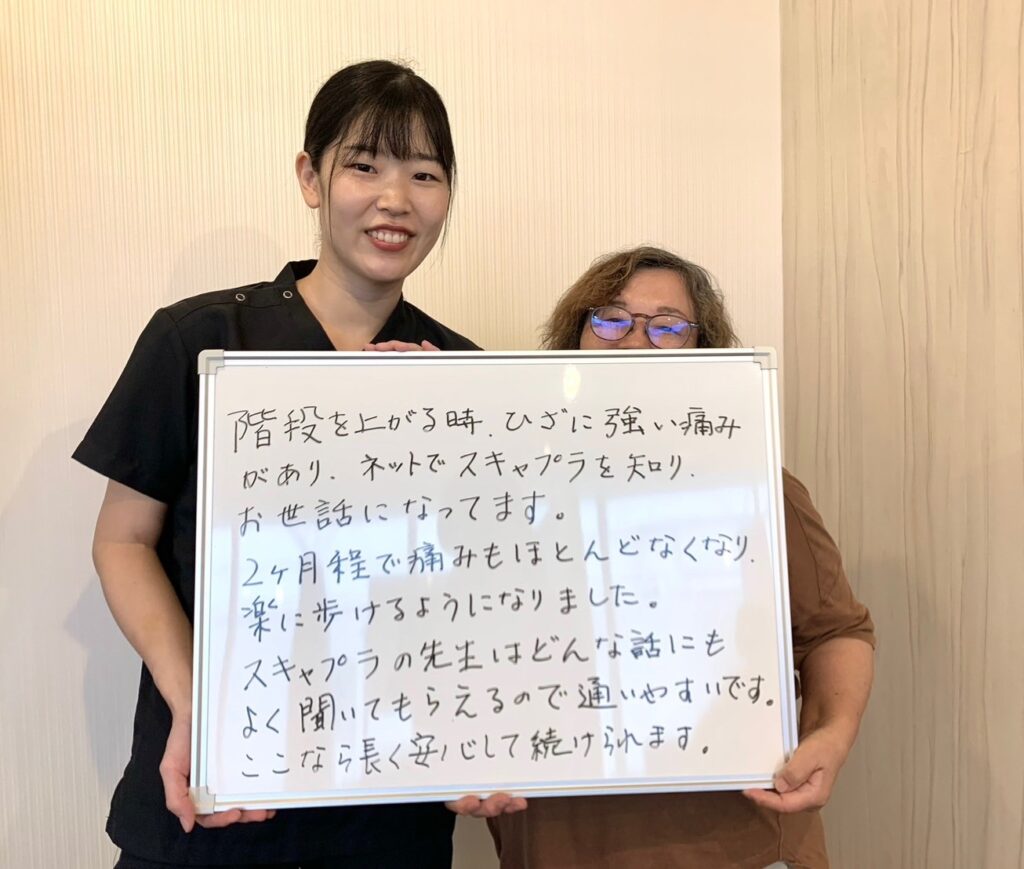 階段を上がる時、ひざに強い痛み
があり、ネットでスキャプラを知り、
お世話になってます。
2ヶ月程で痛みもほとんどなくなり、
楽に歩けるようになりました。
スキャプラの先生はどんな話にも
よく聞いてもらえるので通いやすいです。
ここなら長く安心して続けられます。